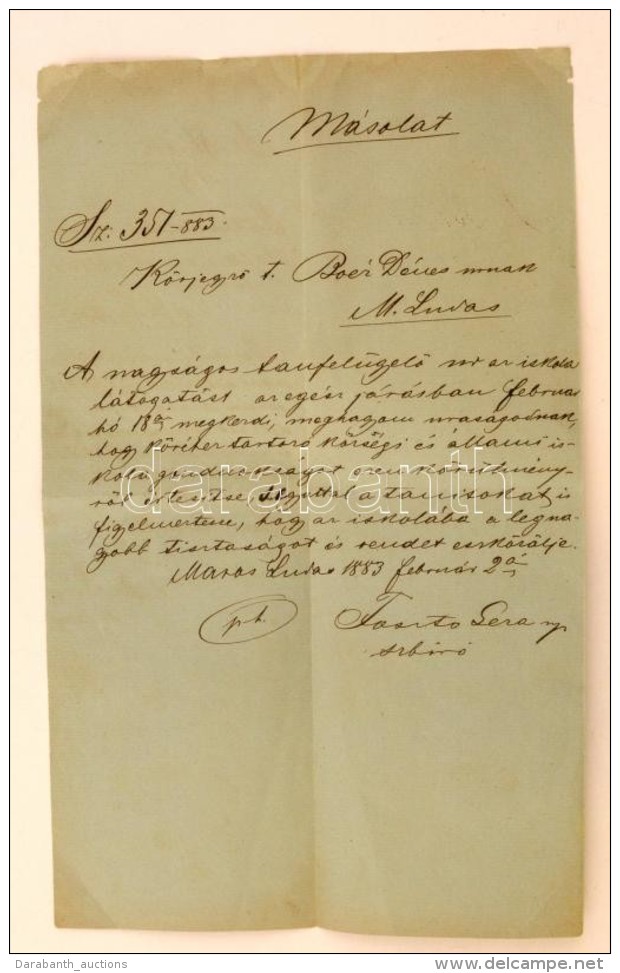 Másolat
Sz: 351-883.
Körjegyző t. Boér Dénes urnak
M. Ludas
A nagságos tanfelügelő ur az iskola
látogatást az egész járásban februar
hó 18án megkezdi, meghagyom uraságodnak,
hogy köréhez tartozó községi és állami is-
kola gondnokságot ezen körülmény-
ről értesitse, egyuttal a tanitokat is
figelmeztese, hogy az iskolába a legna-
gobb tisztaságot és rendet eszközölje.
Maros Ludas 1883 február 2án
p.h.
szbiró
darabanth
Darabanth_auctions
delcampe.net